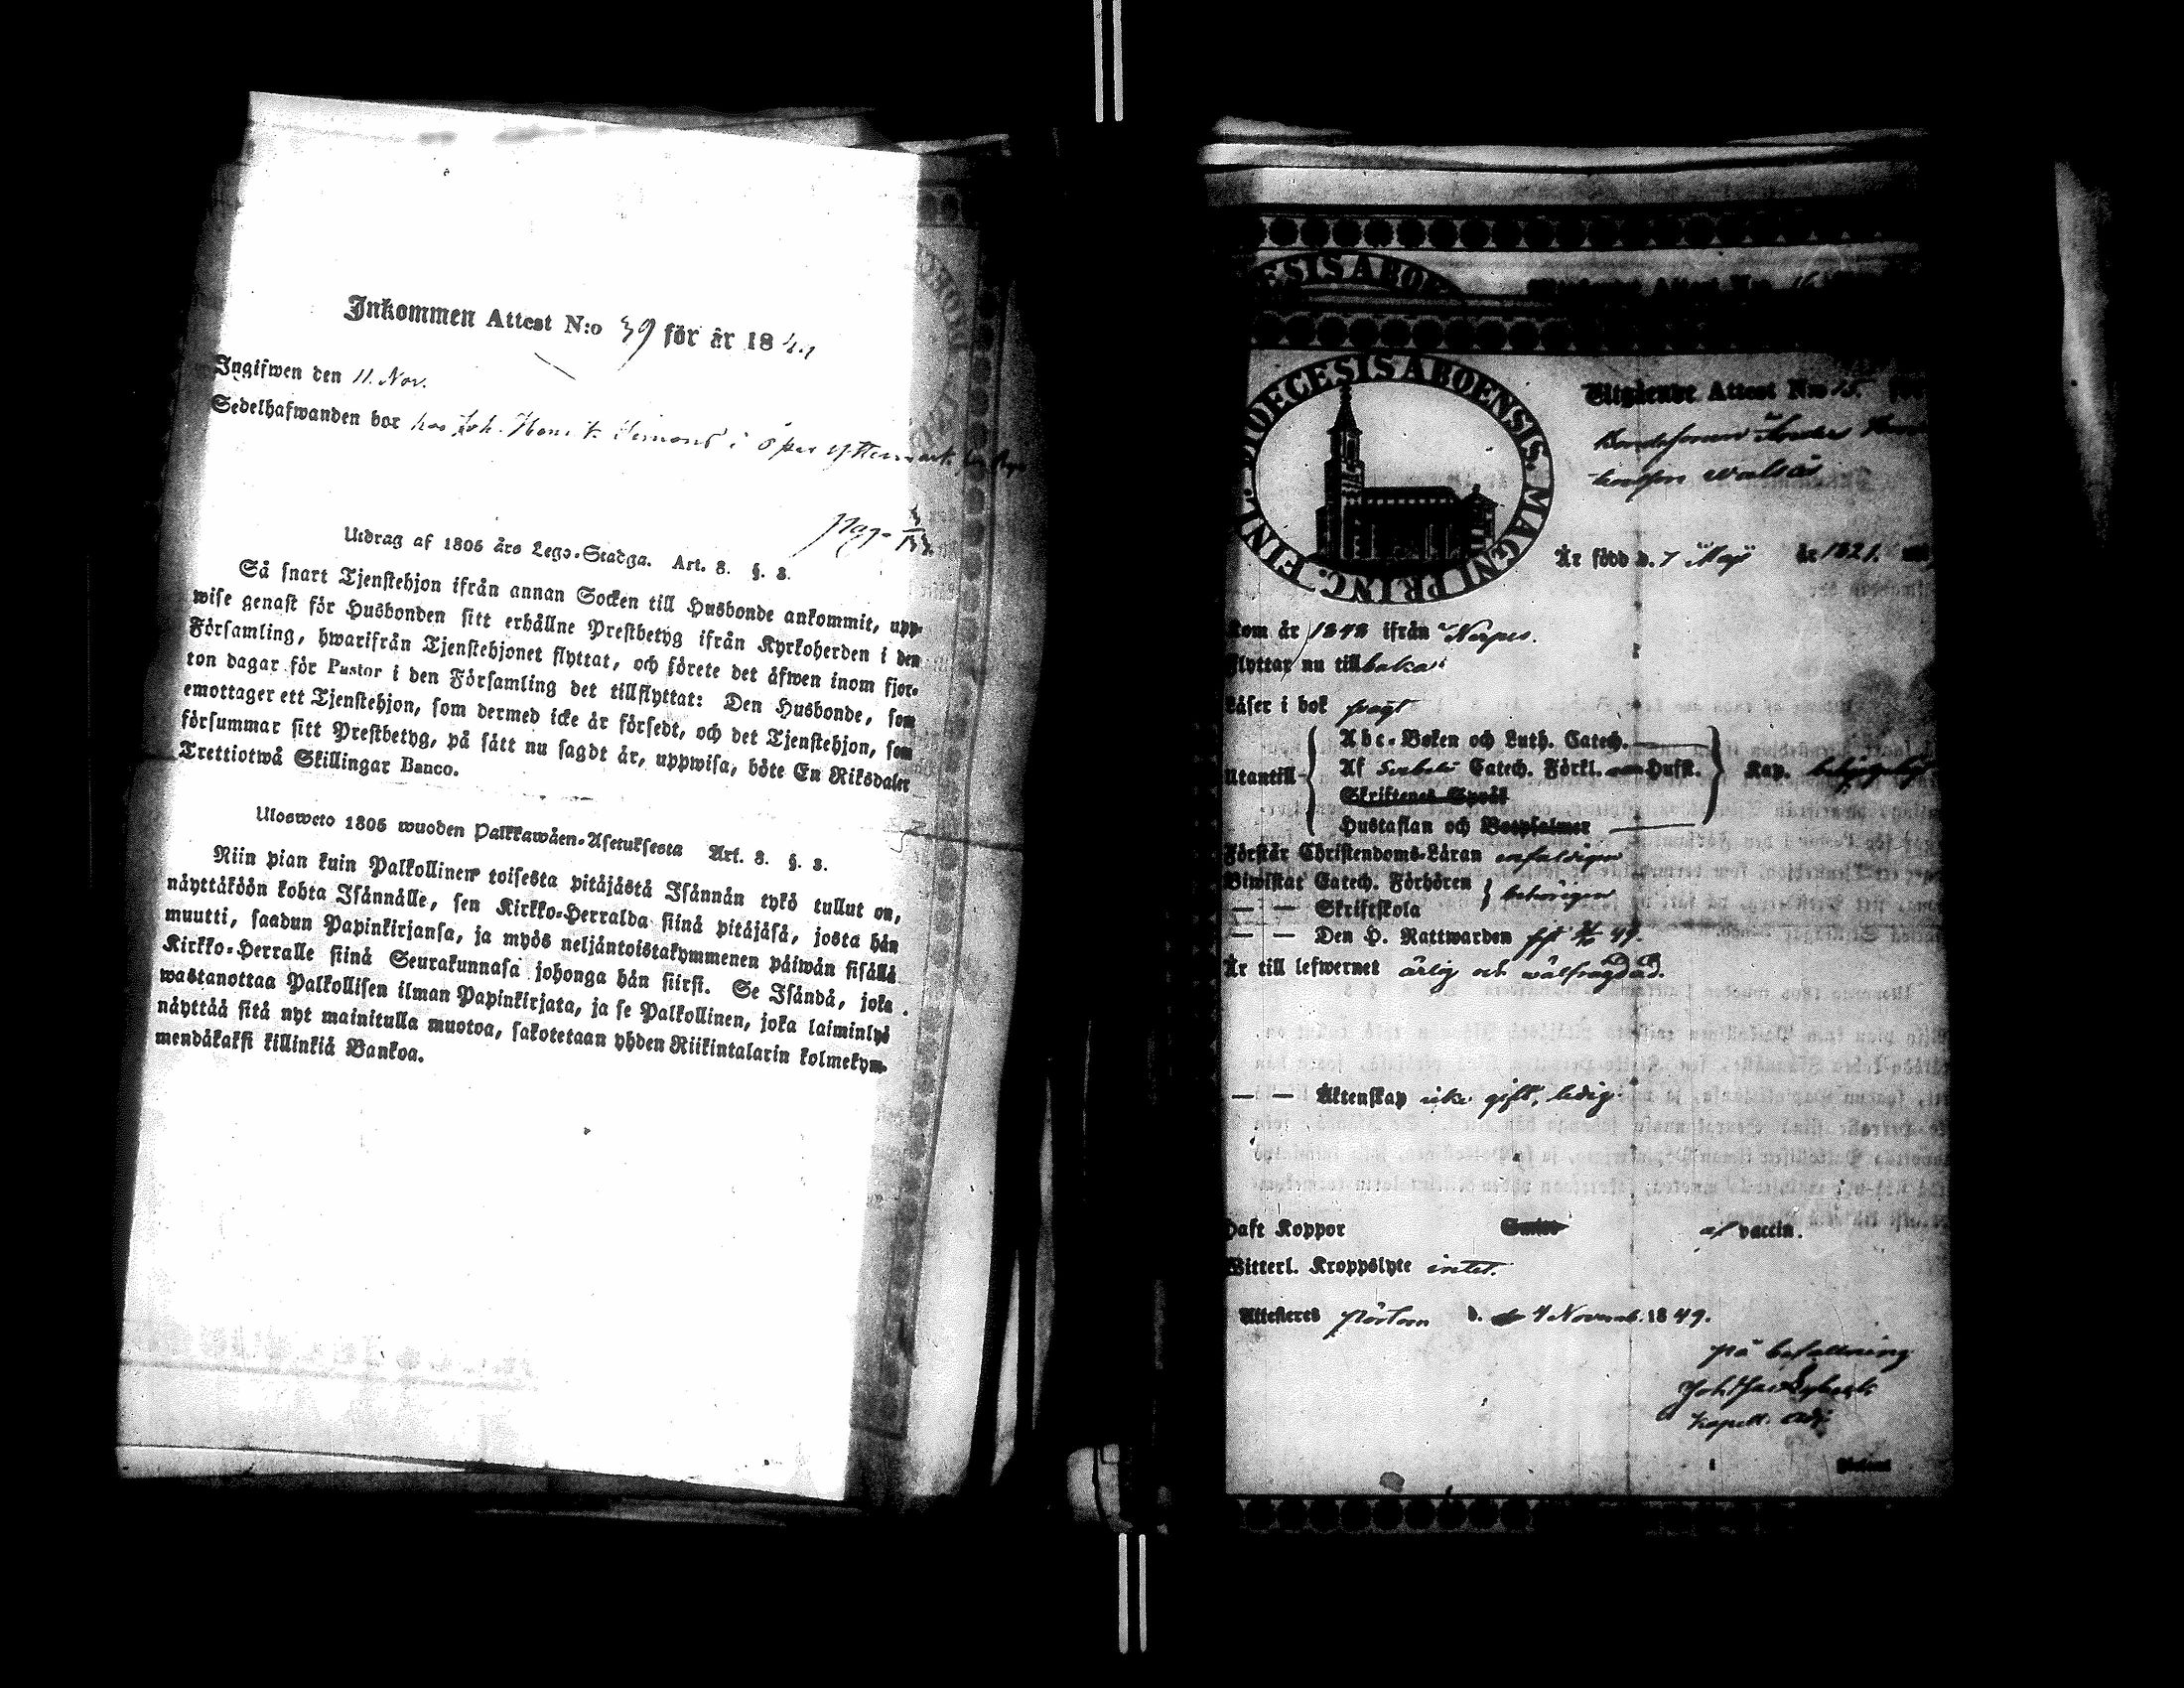 Inkommen Attest N:o 39 för år 184
Ingifwen den 11. Nov.
Sedelhafwanden bor hos Joh. Henr. Simons i Öfver
pag.
Utdrag af 1805 års Lego-Stadga. Art. 8. §. 3.
Så snart Tjenstehjon ifrån annan Socken till Husbonde ankommit, upp-
wise genast för Husbonden sitt erhållne Prestbetyg ifrån Kyrkoherden i den
Församling, hwarifrån Tjenstehjonet flyttat, och förete det äfwen inom fjor-
ton dagar för Pastor i den Församling det tillflyttat: Den Husbonde, som
emottager ett Tjenstehjon, som dermed icke är försedt, och det Tjenstehjon, som
försummar sitt Prestbetyg, på sätt nu sagdt är, uppwisa, böte En Riksdaler
Trettiotwå Skillingar Banco.
Ulosweto 1805 wuoden Palkkawäen-Asetuksesta Art. 8. §. 3.
Niin pian kuin Palkollinen toisesta pitäjästä Isännän tykö tullut on,
näyttäköön kohta Isännälle, sen Kirkko-Herralda siinä pitäjäsä, josta hän
muutti, saadun Papinkirjansa, ja myös neljäntoistakymmenen päiwän sisällä
Kirkko-Herralle siinä Seurakunnasa johonga hän siirsi. Se Isändä, joka
wastanottaa Palkollisen ilman Papinkirjata, ja se Palkollinen, joka laiminlyö
näyttää sitä nyt mainitulla muotoa, sakotetaan yhden Riikintalarin kolmekym-
mendäkaksi killinkiä Bankoa.
ESIS ABOE
FINL. DIOECESIS ABOENSIS. MAGNI PRINC.
Utgående Attest N:o 15.
Bondesonen
Är född d. 7 Maji år 1821.
Kom år 1848 ifrån Nerpes.
Flyttar nu tillbaka
Läser i bok
Abc-Boken och Luth. Catech.
Utantill Af Svebelii Catech. Förkl. Hufst. Kap.
Skriftenes Språk
Hustaflan och Botpsalmer
Förstår Christendoms-Läran enfaldigen
Biwistat Catech. Förhören behörigen
— — Skriftskola
— — Den H. Nattwarden 49.
Är till lefwernet ärlig och wälfrägdad.
— — Äktenskap icke gift, ledig.
Haft Koppor af vaccin.
Witterl. Kroppslyte intet.
Attesteres Pörtom d. 4 Novemb. 1849.
på befallning
Kapell. Adj.